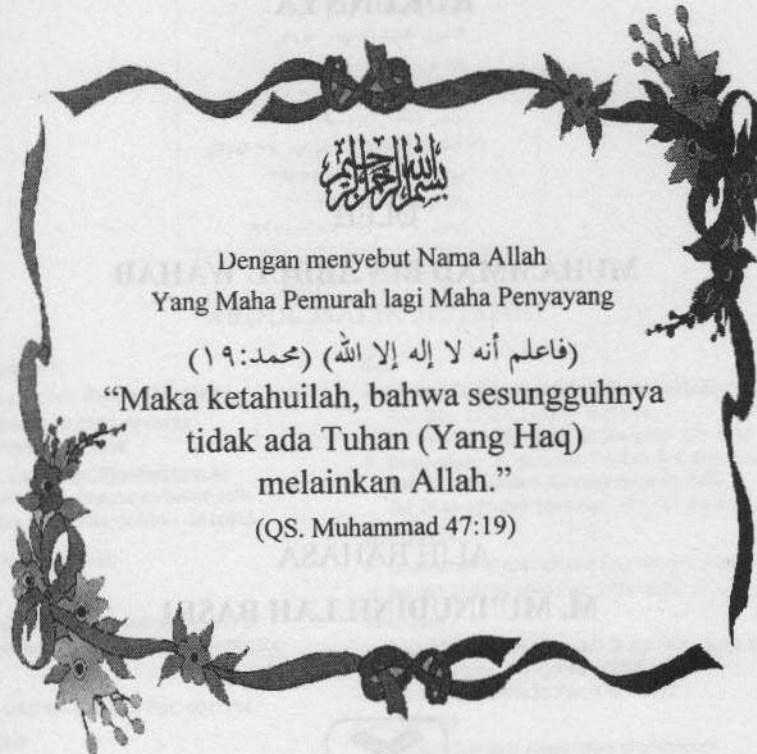 بسم الله الرحمن الرحيم
Dengan menyebut Nama Allah
Yang Maha Pemurah lagi Maha Penyayang
(فاعلم أنه لا إله إلا الله) (محمد:١٩)
“Maka ketahuilah, bahwa sesungguhnya
tidak ada Tuhan (Yang Haq)
melainkan Allah.”
(QS. Muhammad 47:19)